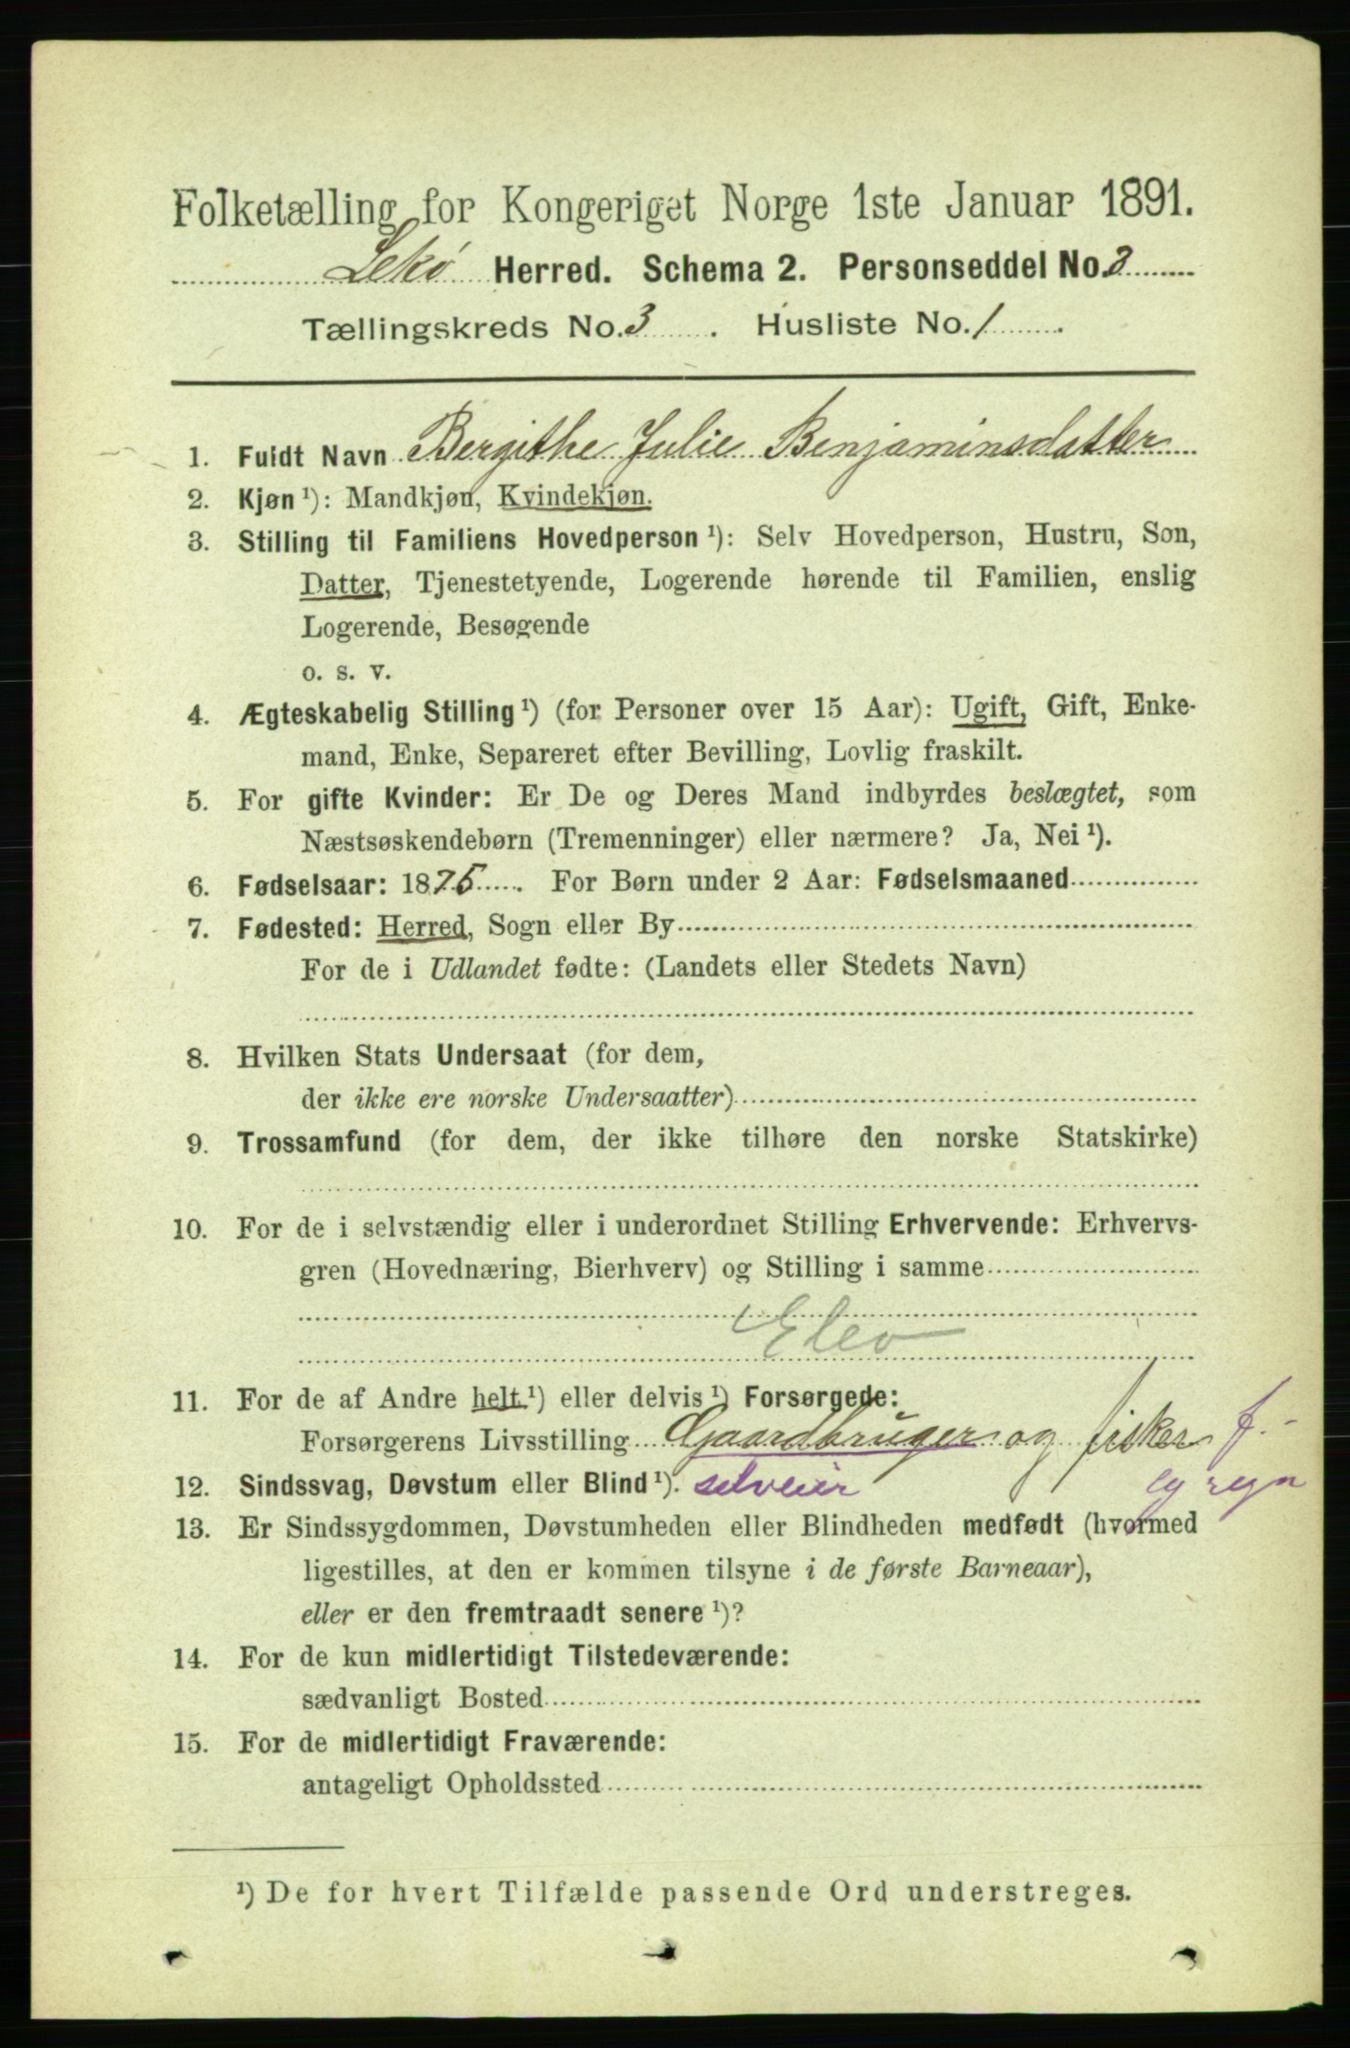 Folketælling for Kongeriget Norge 1ste Januar 1891.
Lekø Herred. Schema 2. Personseddel No. 3
Tællingskreds No. 3. Husliste No. 1.
1. Fuldt Navn Bergithe Julie Benjaminsdatter
2. Kjøn ¹): Mandkjøn, Kvindekjøn.
3. Stilling til Familiens Hovedperson ¹): Selv Hovedperson, Hustru, Søn,
Datter, Tjenestetyende, Logerende hørende til Familien, enslig
Logerende, Besøgende
o. s. v.
4. Ægteskabelig Stilling ¹) (for Personer over 15 Aar): Ugift, Gift, Enke-
mand, Enke, Separeret efter Bevilling, Lovlig fraskilt.
5. For gifte Kvinder: Er De og Deres Mand indbyrdes beslægtet, som
Næstsøskendebørn (Tremenninger) eller nærmere? Ja, Nei ¹).
6. Fødselsaar: 1875. For Børn under 2 Aar: Fødselsmaaned
7. Fødested: Herred, Sogn eller By
For de i Udlandet fødte: (Landets eller Stedets Navn)
8. Hvilken Stats Undersaat (for dem,
der ikke ere norske Undersaatter)
9. Trossamfund (for dem, der ikke tilhøre den norske Statskirke)
10. For de i selvstændig eller i underordnet Stilling Erhvervende: Erhvervs-
gren (Hovednæring, Bierhverv) og Stilling i samme
Elev
11. For de af Andre helt ¹) eller delvis ¹) Forsørgede:
Forsørgerens Livsstilling Gaardbruger og fisker f.
12. Sindssvag, Døvstum eller Blind ¹). selveier
13. Er Sindssygdommen, Døvstumheden eller Blindheden medfødt (hvormed
ligestilles, at den er kommen tilsyne i de første Barneaar),
eller er den fremtraadt senere ¹)?
14. For de kun midlertidigt Tilstedeværende:
sædvanligt Bosted
15. For de midlertidigt Fraværende:
antageligt Opholdssted
¹) De for hvert Tilfælde passende Ord understreges.